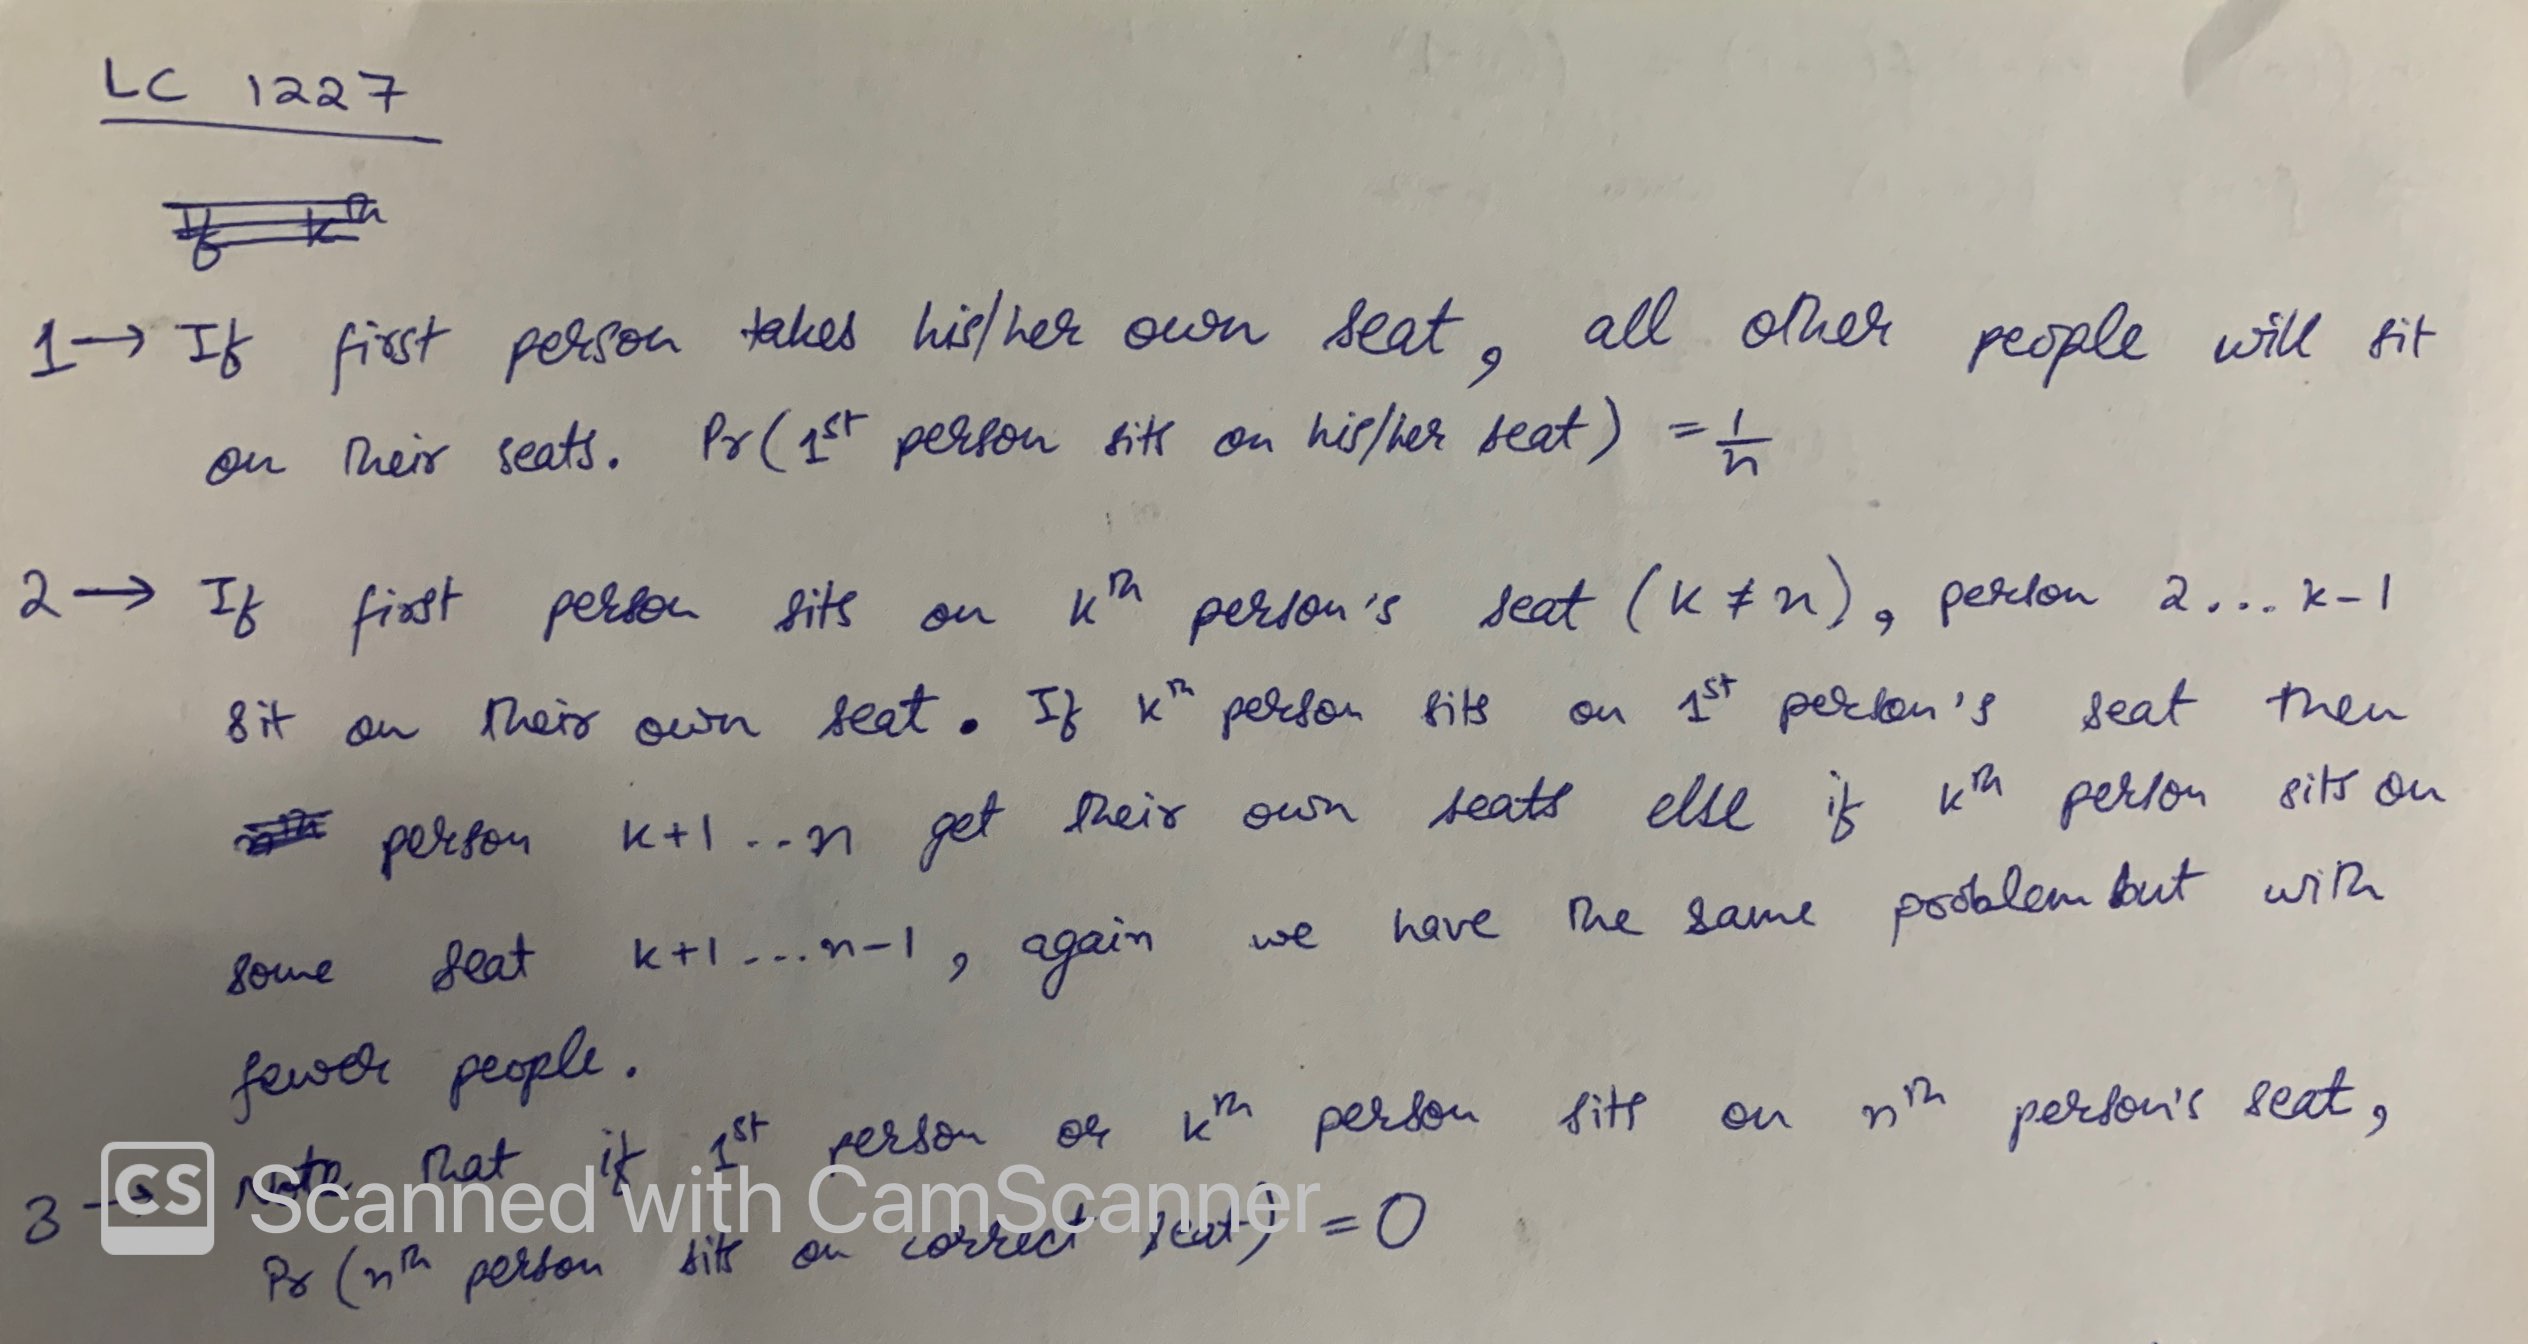 LC 1227
If kth
1 → If first person takes his/her own seat, all other people will sit
on their seats. Pr(1st person sits on his/her seat) = 1/n
2 → If first person sits on kth person's seat (k ≠ n), person 2...k-1
sit on their own seat. If kth person sits on 1st person's seat then
person k+1..n get their own seats else if kth person sits on
some seat k+1...n-1, again we have the same problem but with
fewer people.
3 → Note that if 1st person or kth person sits on nth person's seat,
CS Scanned with CamScanner
Pr(nth person sits on correct seat) = 0